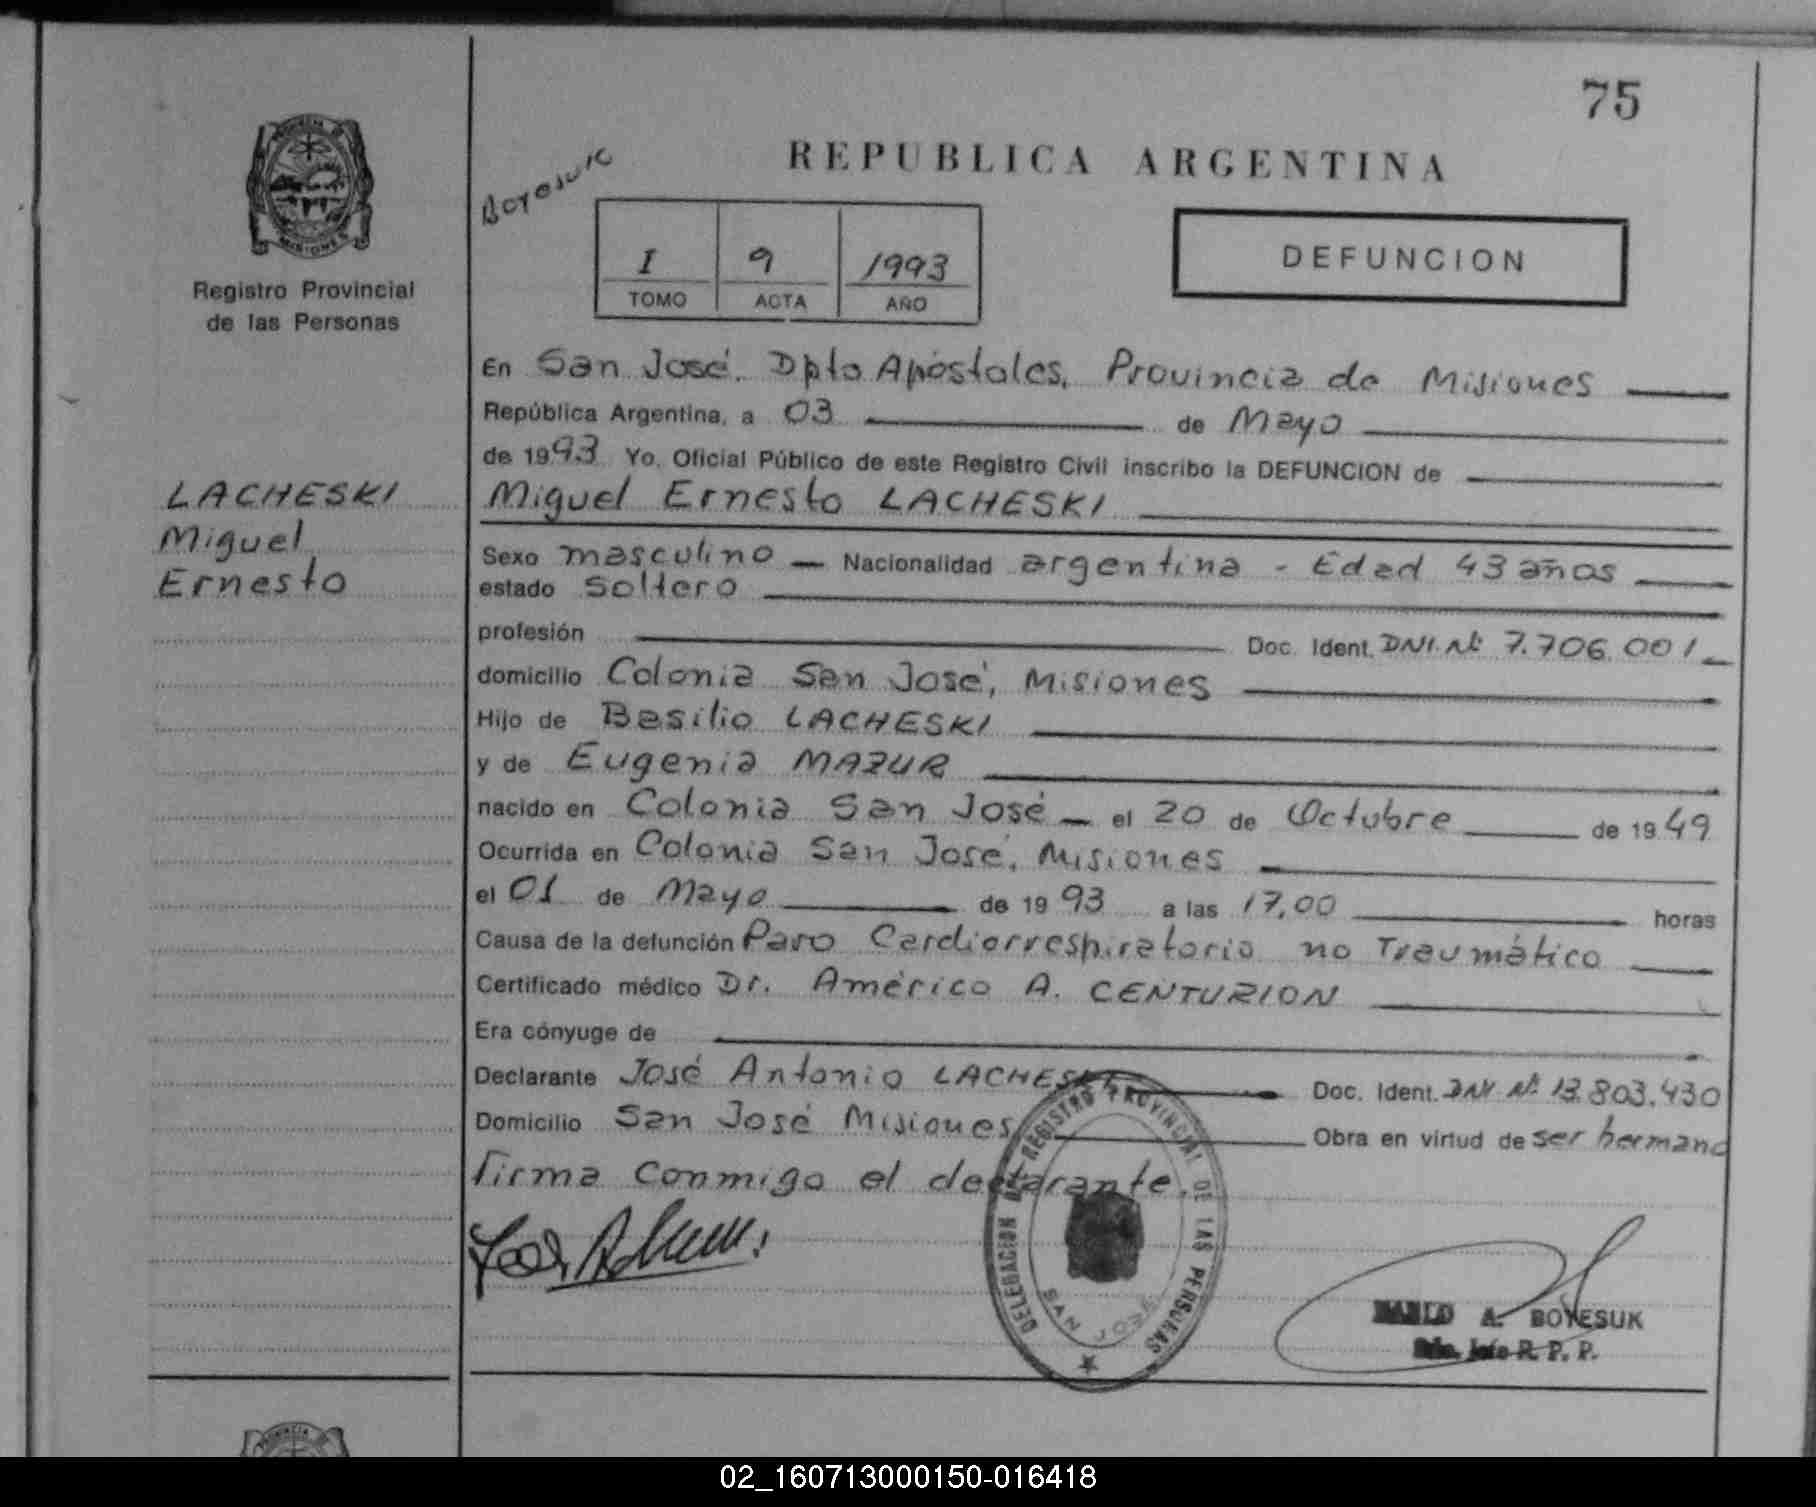 75
PROVINCIA DE
MISIONES
Registro Provincial
de las Personas
LACHESKI
Miguel
Ernesto
Boyesuk
REPUBLICA ARGENTINA
I 9 1993
TOMO ACTA AÑO
DEFUNCION
En San José. Dpto Apóstoles, Provincia de Misiones
República Argentina, a 03 de Mayo
de 1993 Yo, Oficial Público de este Registro Civil inscribo la DEFUNCION de
Miguel Ernesto LACHESKI
Sexo masculino — Nacionalidad argentina - Edad 43 años
estado soltero
profesión Doc. Ident. DNI. Nº 7.706.001
domicilio Colonia San José, Misiones
Hijo de Basilio LACHESKI
y de Eugenia MAZUR
nacido en Colonia San José — el 20 de Octubre de 1949
Ocurrida en Colonia San José, Misiones
el 01 de Mayo de 1993 a las 17,00 horas
Causa de la defunción Paro Cardiorrespiratorio no Traumático
Certificado médico Dr. Américo A. CENTURION
Era cónyuge de
Declarante José Antonio LACHESKI Doc. Ident. DNI Nº 13.803.430
Domicilio San José Misiones Obra en virtud de ser hermano
Firma conmigo el declarante.
DELEGACION DEL REGISTRO PROVINCIAL DE LAS PERSONAS
SAN JOSE
PABLO A. BOYESUK
Jefe R. P. P.
PROVINCIA DE
02_160713000150-016418